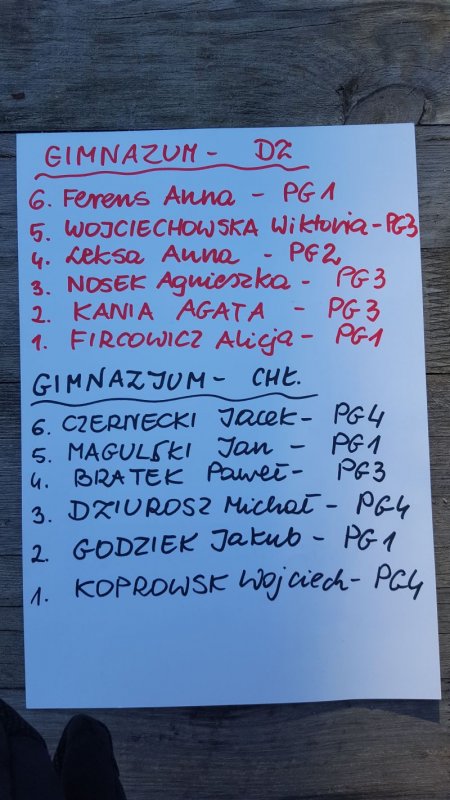 GIMNAZUM - DZ
6. Ferens Anna - PG1
5. WOJCIECHOWSKA Wiktoria - PG3
4. Leksa Anna - PG2
3. NOSEK Agnieszka - PG3
2. KANIA AGATA - PG3
1. FIRCOWICZ Alicja - PG1
GIMNAZJUM - CHŁ.
6. CZERNECKI Jacek - PG4
5. MAGULSKI Jan - PG1
4. BRATEK Paweł - PG3
3. DZIUROSZ Michał - PG4
2. GODZIEK Jakub - PG1
1. KOPROWSK Wojciech - PG4